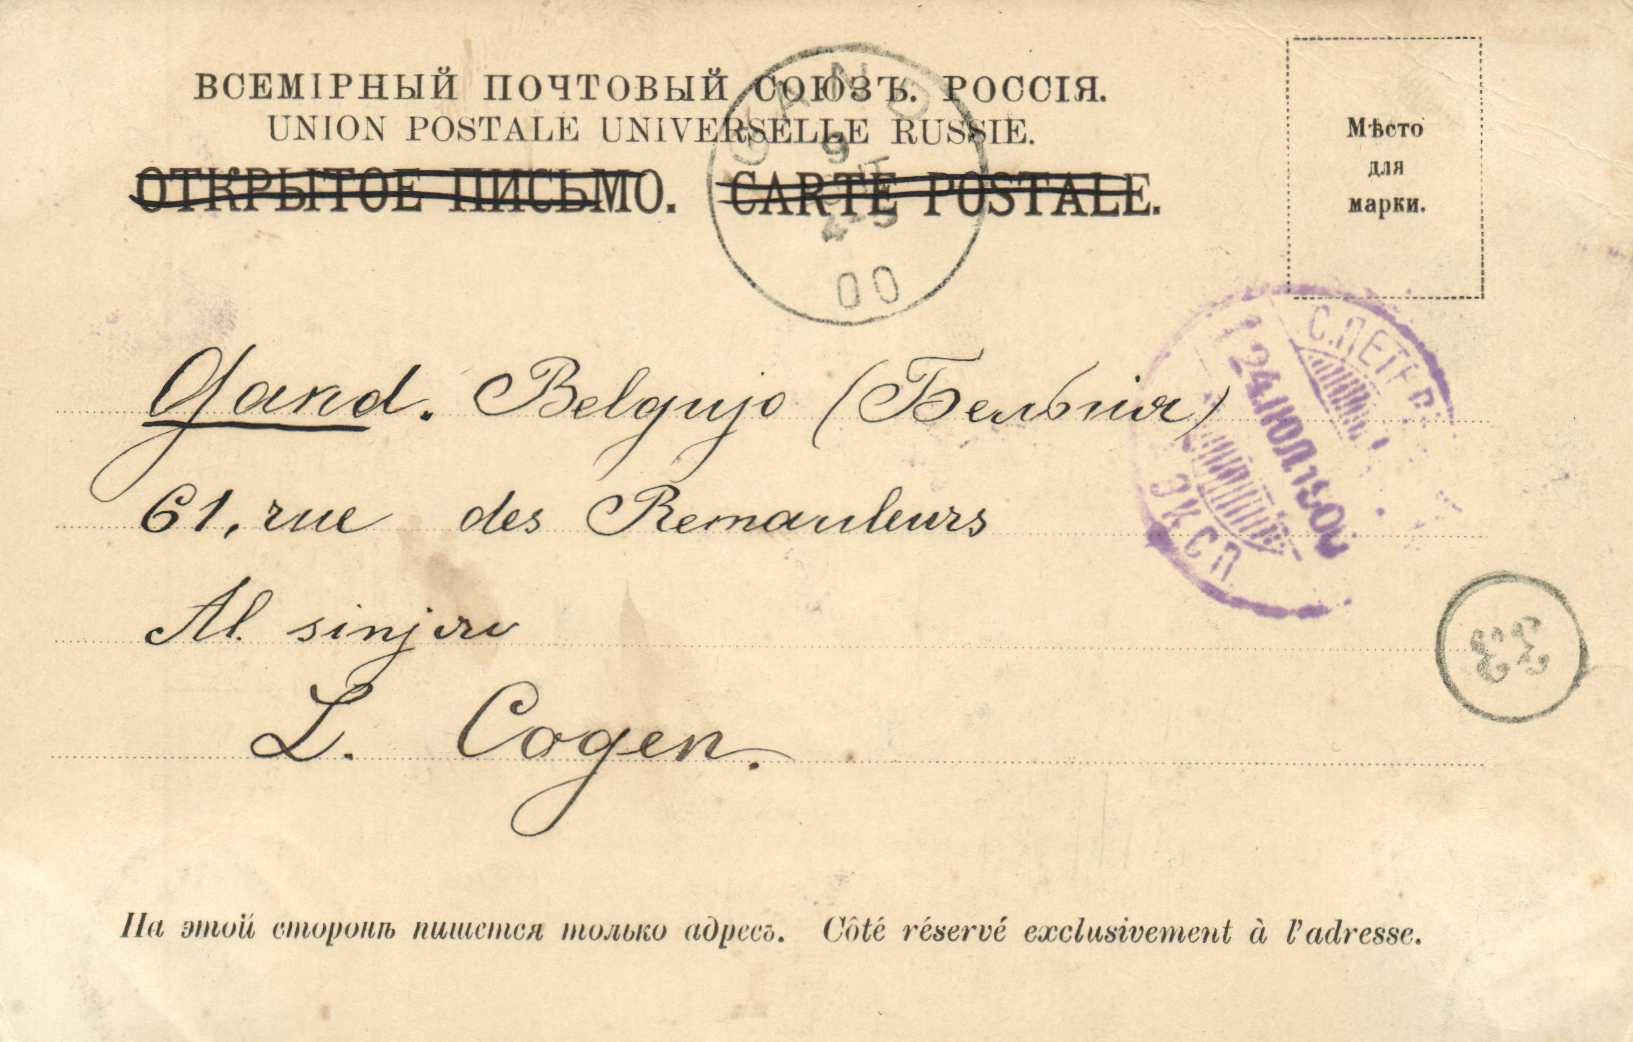 ВСЕМІРНЫЙ ПОЧТОВЫЙ СОЮЗЪ. РОССІЯ.
UNION POSTALE UNIVERSELLE RUSSIE.
ОТКРЫТОЕ ПИСЬМО. CARTE POSTALE.
Мѣсто
для
марки.
GAND
9
00
С.ПЕТЕРБ
24 ІЮЛ 1900
ЭКСП
Gand. Belgujo (Бельгія)
61, rue des Remouleurs
Al sinjoro
L. Cogen.
33
На этой сторонѣ пишется только адресъ. Côté réservé exclusivement à l'adresse.